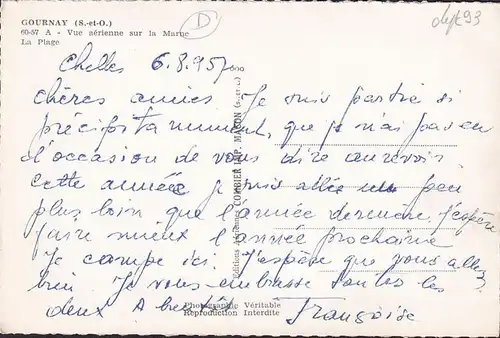 GOURNAY (S.-et-O.)
60-57 A - Vue aérienne sur la Marne
La Plage
D
dept 93
Chelles 6.8.957
chères amies Je suis partie si
précipitamment, que je n'ai pas eu
d'occasion de vous dire aurevoir
cette année je suis allée un peu
plus loin que l'année dernière, j'espère
faire mieux l'année prochaine
Je campe ici. J'espère que vous allez
bien Je vous embrasse toutes les
deux A bientôt Françoise
Editions COMBIER IMP. MACON (S.-et-L.)
Photographie Véritable
Reproduction Interdite